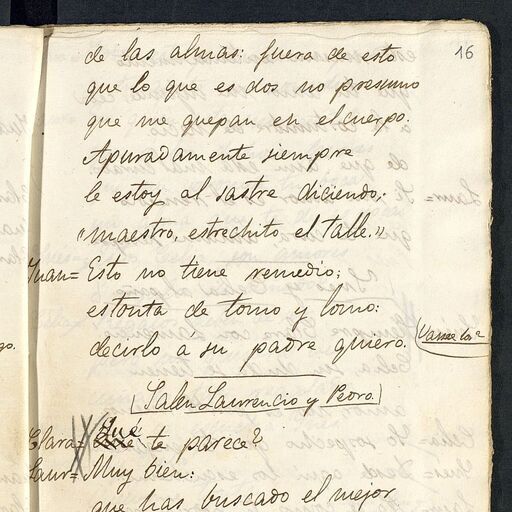 16
de las almas: fuera de esto
que lo que es dos no presumo
que me quepan en el cuerpo.
Apuradamente siempre
le estoy al sastre diciendo;
"maestro, estrechito el talle."
Juan= Esto no tiene remedio;
es tonta de tomo y lomo:
decirlo á su padre quiero. (Vanse los 2
(Salen Laurencio y Pedro)
Clara= Qué te parece?
Laur= Muy bien:
que has buscado el mejor
go.